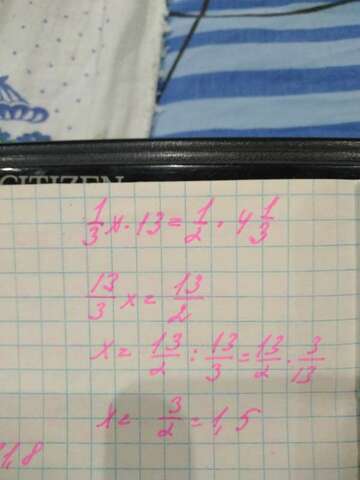 CITIZEN
1/3 x · 13 = 1/2 · 4 1/3
13/3 x = 13/2
x = 13/2 : 13/3 = 13/2 · 3/13
x = 3/2 = 1,5
1,8